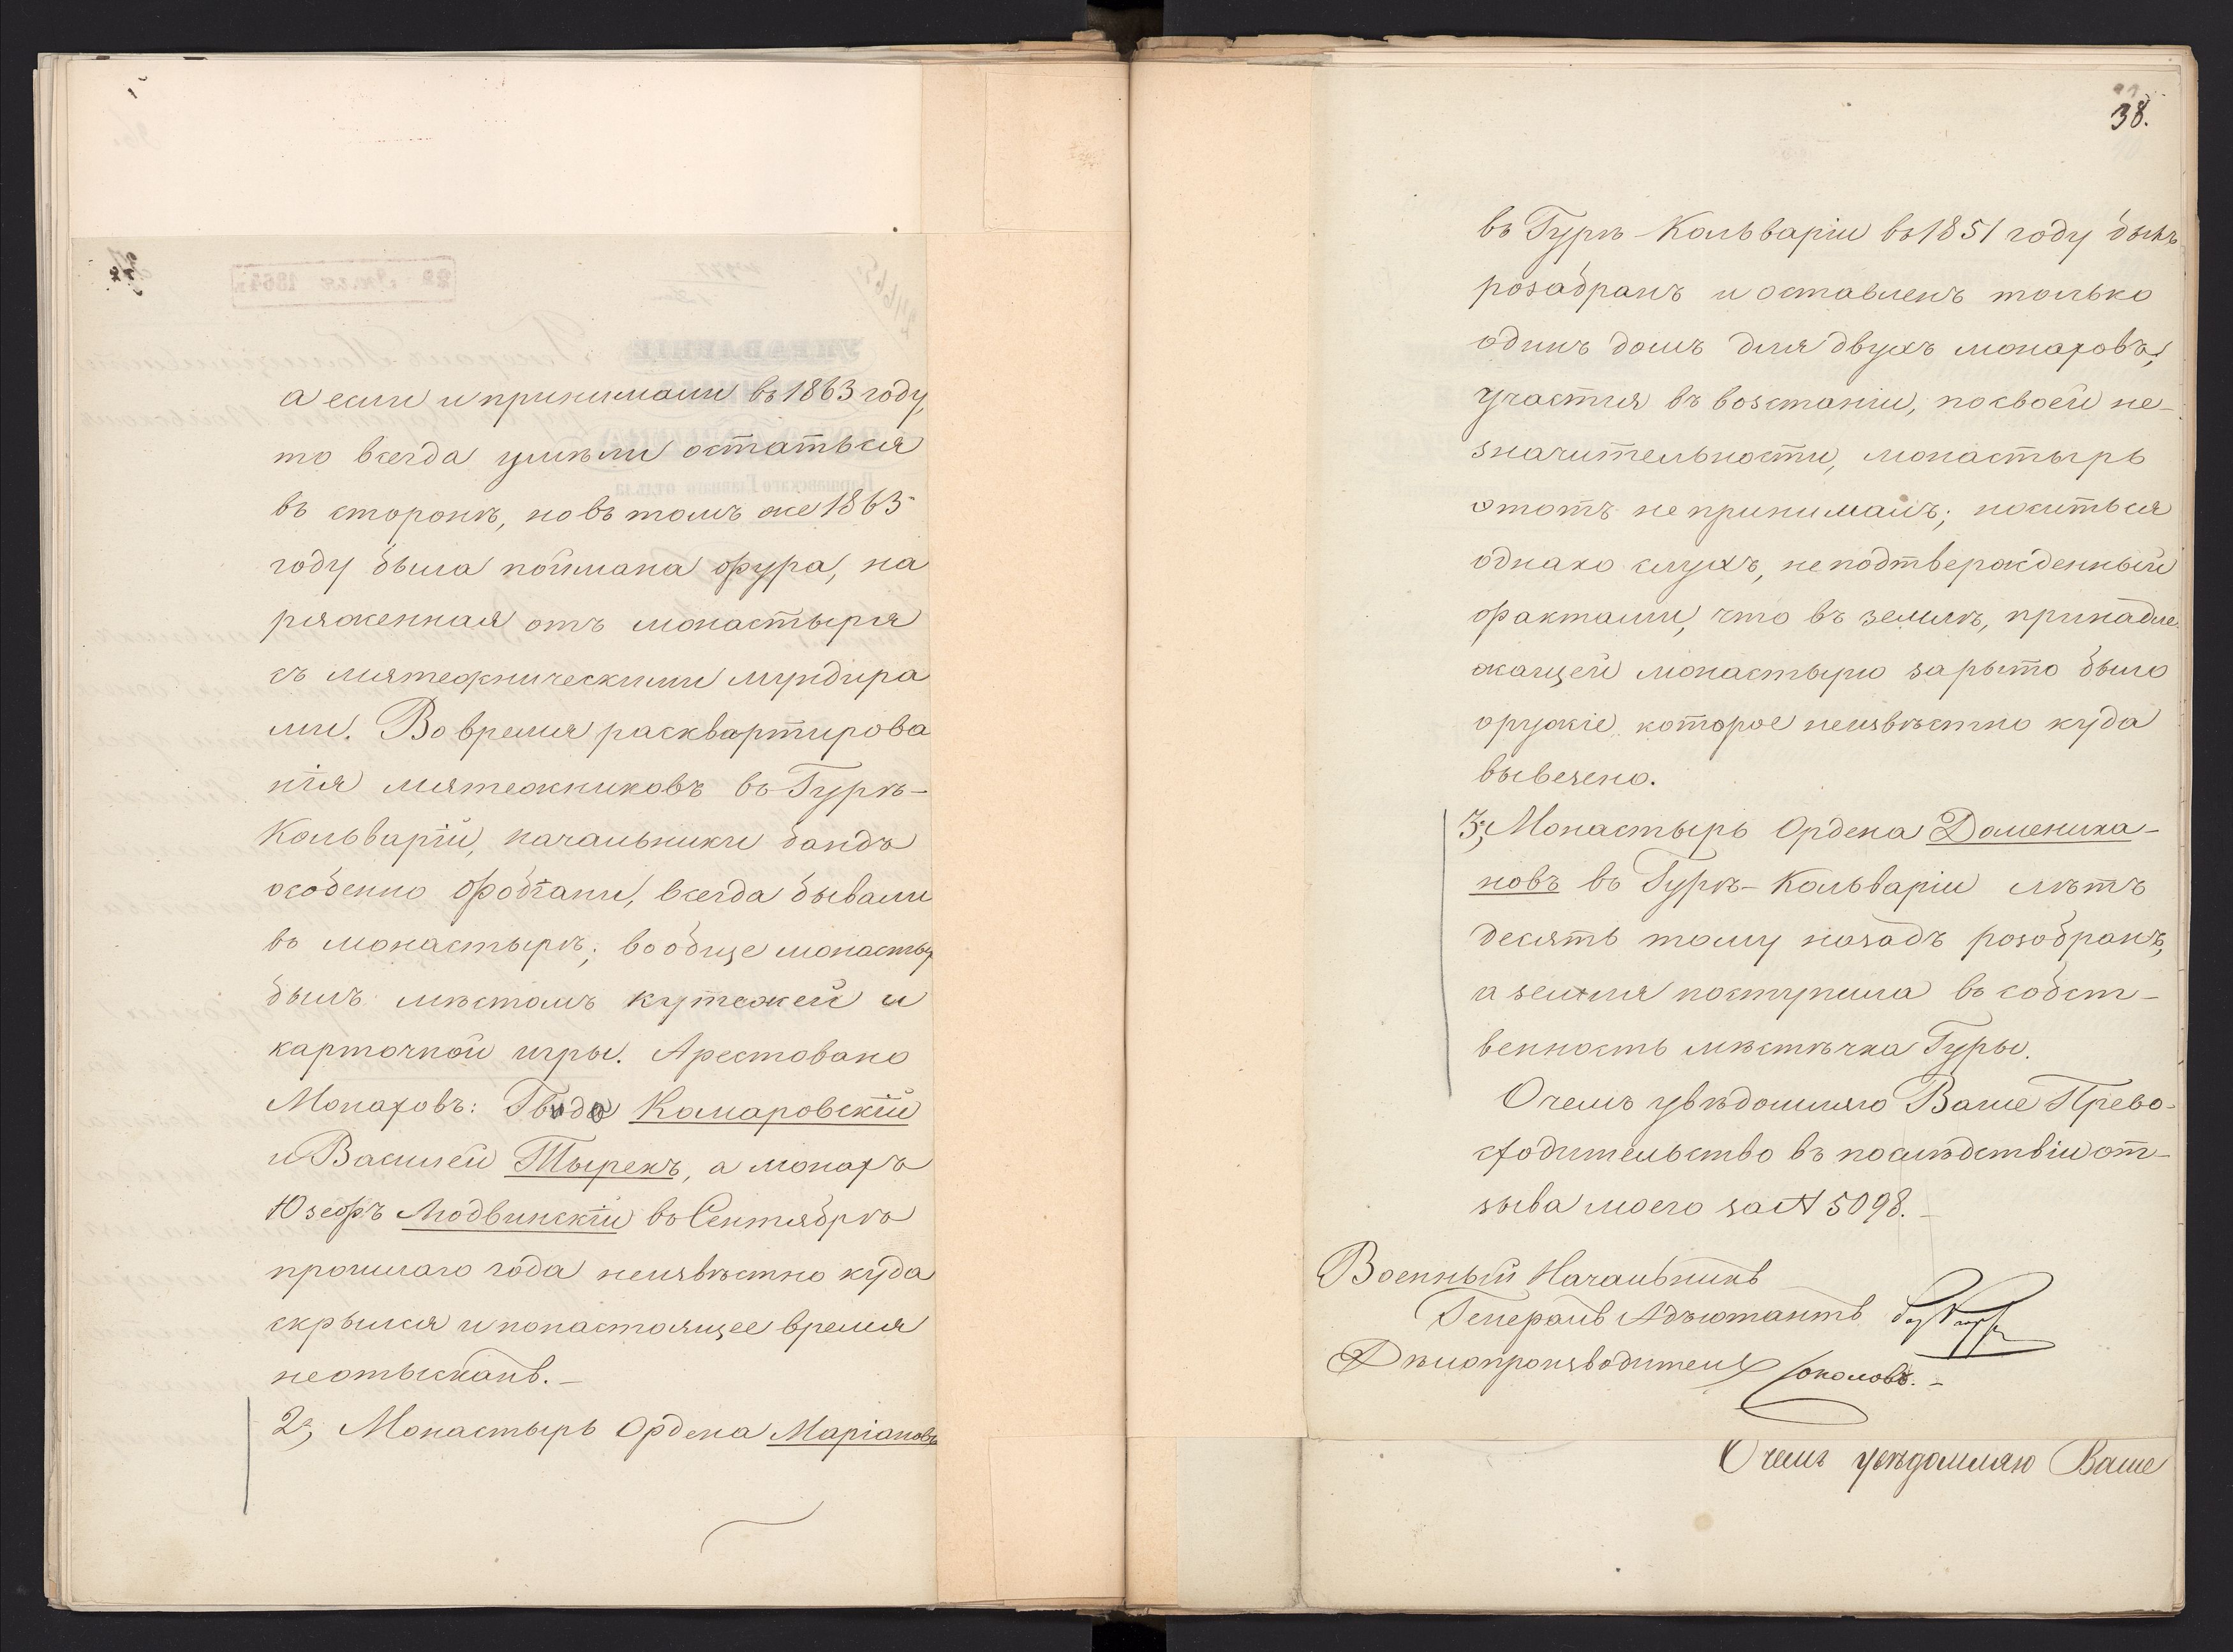 а если и принимали въ 1863 году,
то всегда умѣли остаться
въ сторонѣ, но въ томъ же 1863
году была поймана фура, на
ряженная отъ монастыря
съ мятежническими мундира
ми. Во время расквартирова
нія мятежниковъ въ Гурѣ-
Кольваріи, начальники бандъ
особенно фабіани, всегда бывали
въ монастырѣ; вообще монастыр
былъ мѣстомъ кутежей и
карточной игры. Арестовано
Монаховъ: Гвидо Комаровскій
и Василей Тырекъ, а монахъ
Юзефъ Людвинскій въ Сентябрѣ
прошлаго года неизвѣстно куда
скрылся и понастоящее время
неотысканъ. -
2, Монастырь Ордена Маріановъ
38.
въ Гурѣ-Кольваріи въ 1851 году былъ
розабранъ и оставленъ только
одинъ домъ для двухъ монаховъ;
участия въ возстаніи, по своей не-
значительности, монастырь
этотъ не принималъ; носиться
однако слухъ, не подтвержденный
фактами, что въ землѣ, принадле
жащей монастырю зарыто было
оружіе, которое неизвѣстно куда
вывезено.
3, Монастырь Ордена Доменика-
новъ въ Гурѣ-Кольваріи лѣтъ
десять тому назадъ розобранъ,
а земля поступила въ собст-
венность мѣстѣчка Гуры.
О чемъ увѣдомляю Ваше Прево-
сходительство въ послѣдствіи от-
зыва моего за № 5098. -
Военный Начальникъ
Генералъ Адъютантъ
Дѣлопроизводитель Соколовъ. -
О чемъ увѣдомляю Ваше